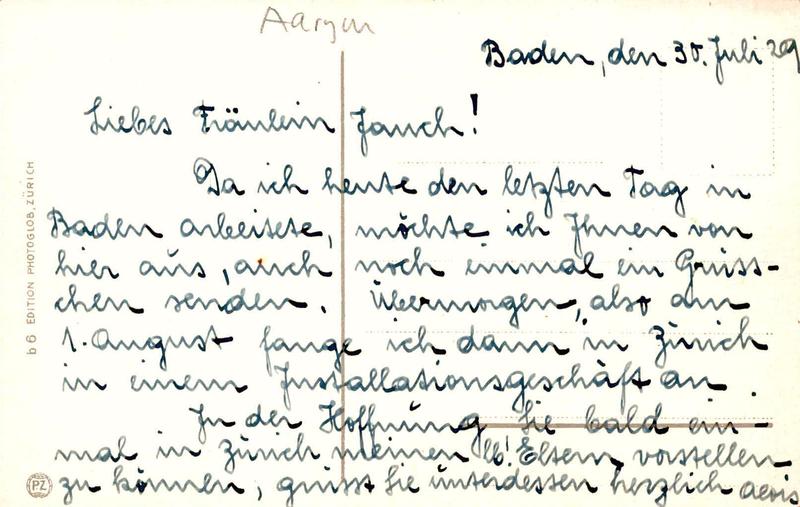 Aargau
Baden, den 30. Juli 29
Liebes Fräulein Jauch!
Da ich heute den letzten Tag in
Baden arbeitete, möchte ich Ihnen von
hier aus, auch noch einmal ein Grüss-
chen senden. Übermorgen, also am
1. August fange ich dann in Zürich
in einem Installationsgeschäft an.
In der Hoffnung Sie bald ein-
mal in Zürich meinen lb! Eltern vorstellen
zu können, grüsst Sie unterdessen herzlich
b6 EDITION PHOTOGLOB, ZÜRICH
PZ